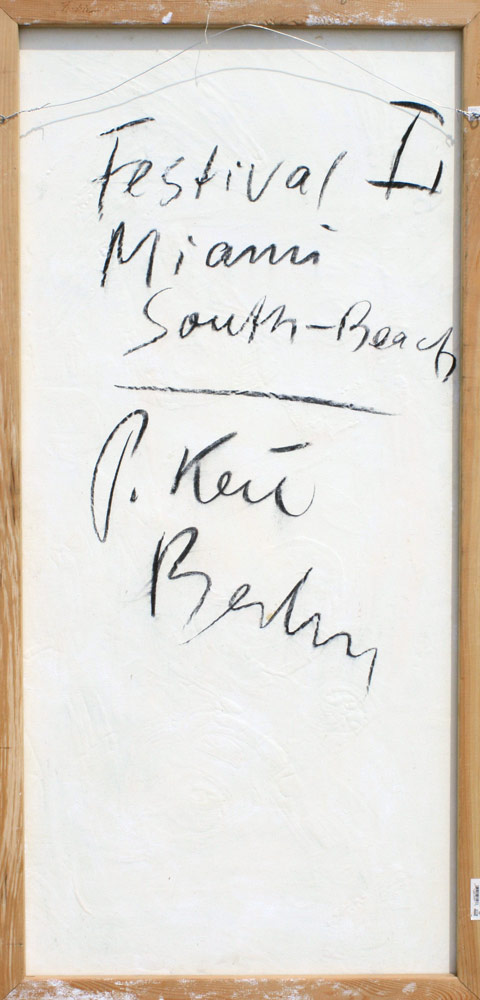 Festival I
Miami
South-Beach
P. Keil
Berlin